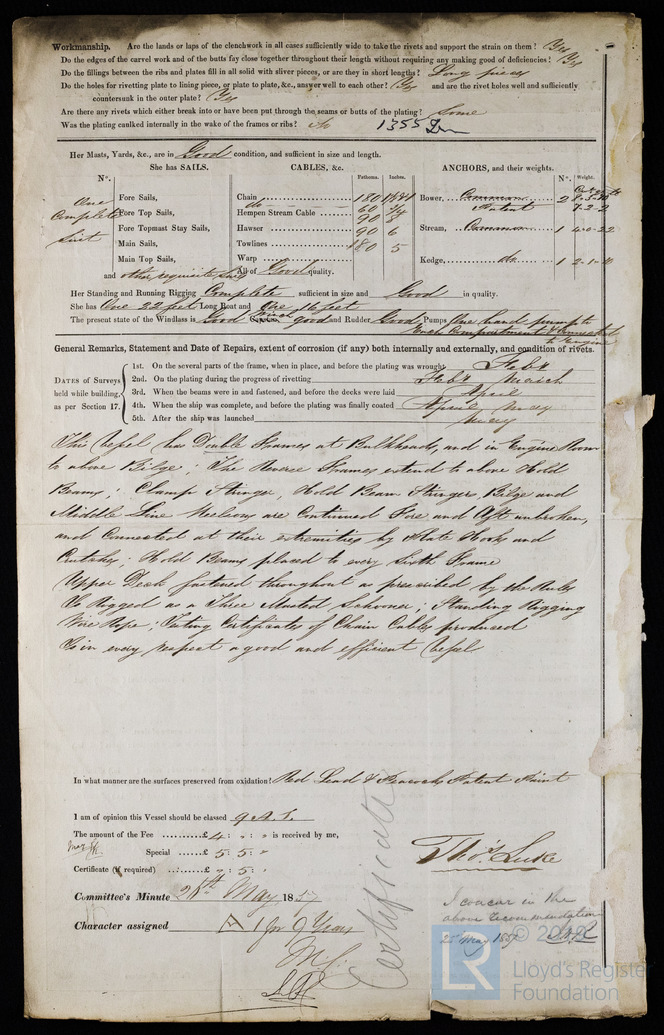 Workmanship. Are the lands or laps of the clenchwork in all cases sufficiently wide to take the rivets and support the strain on them? Yes
Do the edges of the carvel work and of the butts fay close together throughout their length without requiring any making good of deficiencies? Yes
Do the fillings between the ribs and plates fill in all solid with sliver pieces, or are they in short lengths? Long pieces
Do the holes for rivetting plate to lining piece, or plate to plate, &c., answer well to each other? Yes and are the rivet holes well and sufficiently
countersunk in the outer plate? Yes
Are there any rivets which either break into or have been put through the seams or butts of the plating? Some
Was the plating caulked internally in the wake of the frames or ribs? No 1355
Her Masts, Yards, &c., are in Good condition, and sufficient in size and length.
She has SAILS. CABLES, &c. ANCHORS, and their weights.
N°. Fathoms. Inches. N°. Weight.
One Complete Suit
Fore Sails, Chain 180 Bower, Common 2
Fore Top Sails, Hempen Stream Cable 60 Patent 7.2.2
Fore Topmast Stay Sails, Hawser 90 6 Stream, Common 1 4.0.22
Main Sails, Towlines 180 5
Main Top Sails, Warp Kedge, do. 1 2.1.10
and other requisite Sails All of Good quality.
Her Standing and Running Rigging Complete sufficient in size and Good in quality.
She has One 22 feet Long Boat and One 16 feet
The present state of the Windlass is Good Winch good and Rudder Good Pumps One hand pump to
Each Compartment & Connected
to Engine
General Remarks, Statement and Date of Repairs, extent of corrosion (if any) both internally and externally, and condition of rivets.
DATES of Surveys held while building, as per Section 17.
1st. On the several parts of the frame, when in place, and before the plating was wrought Feby
2nd. On the plating during the progress of rivetting Feby March
3rd. When the beams were in and fastened, and before the decks were laid April
4th. When the ship was complete, and before the plating was finally coated April May
5th. After the ship was launched May
This Vessel has Double Frames at Bulkheads, and in Engine Room
to above Bilge; The Reverse Frames extend to above Hold
Beams; Clamp Stringer, Hold Beam Stringer, Bilge and
Middle Line Keelsons are Continued Fore and Aft unbroken,
and Connected at their extremities by Plate Hooks and
Crutches; Hold Beams placed to every Sixth Frame
Upper Deck fastened throughout as prescribed by the Rules
Is Rigged as a Three Masted Schooner; Standing Rigging
Wire Rope; Testing Certificates of Chain Cables produced
Is in every respect a good and efficient Vessel
In what manner are the surfaces preserved from oxidation? Red Lead & Peacocks Patent Paint
I am of opinion this Vessel should be classed 9 A.1.
The amount of the Fee ..........£ 4 : " : " is received by me,
Special ......£ 5 : 5 : "
Certificate (if required) ......£ " : 5 : "
Thos. Luke
Certificate
Committee's Minute 26th May, 1857
Character assigned A 1 for 9 Years
I concur in the
above recommendation
25 May 1857
© 2019
LR
Lloyd's Register
Foundation